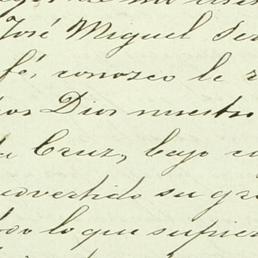 José Miguel
fé, conozco le
Dios nuestro
Cruz, bajo
advertido su
lo que supier